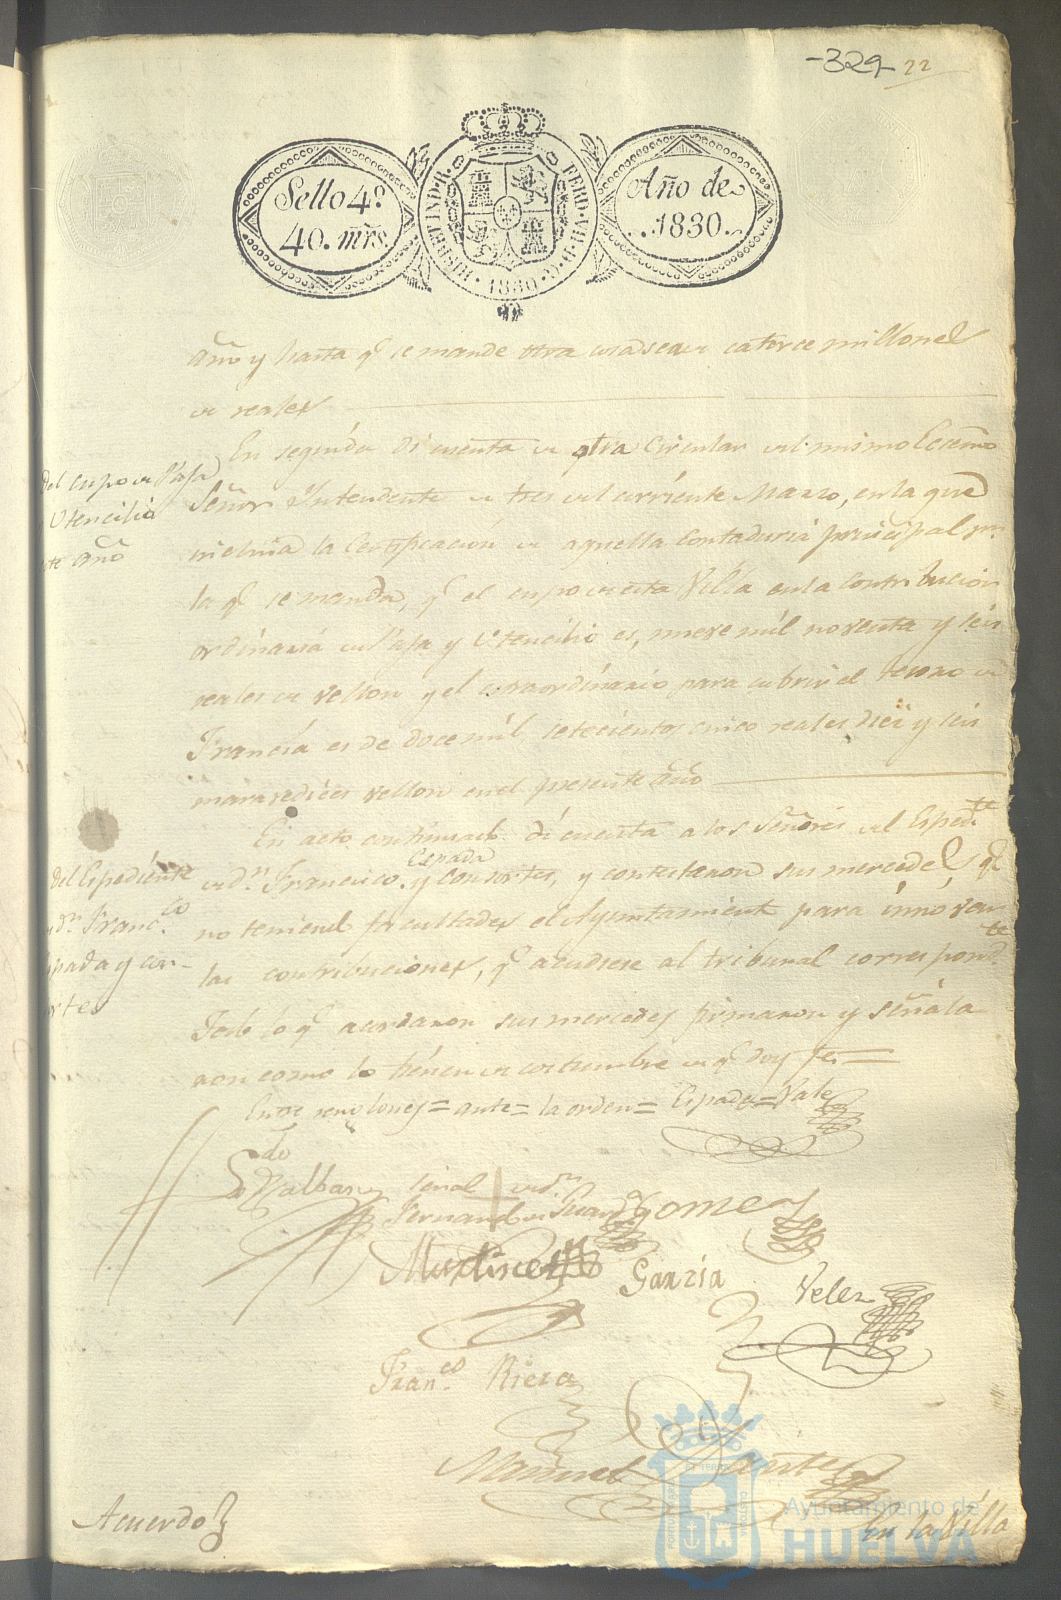 -329- 22
Sello 4º.
40. mrs.
HISP. ET IND. R. FERD. VII. D. G. 1830.
Año de
1830.
año y hasta q.e se mande otra cosa sean catorce millones
de reales
En seguida di cuenta de otra Circular del mismo Excmo
Señor Intendente de tres del corriente Marzo, en la que
incluia la Certificacion de aquella Contaduria principal por
la q.e se manda, q.e el cupo de esta Villa en la contribucion
ordinaria de Paja y Utencilio es, nueve mil noventa y seis
reales de vellon y el extraordinario para cubrir el tesoro de
Francia es de doce mil setecientos cinco reales diez y seis
maravedices vellon en el presente año
Del cupo de Paja
Utencilio
te año
En acto continuado di cuenta a los Señores del Exped.te
de D.n Francisco Espada y Consortes, y contestaron sus mercedes q.e
no teniend facultades el Ayuntamient para innovar
las contribuciones, q.e acudiese al tribunal correspond.te
Del Espediente
D.n Franc.co
pada y con-
ortes
Todo lo q.e acordaron sus mercedes firmaron y señala
ron como lo tienen de costumbre de q.e doy fe=
Entre renglones= ante= la orden= Espada= Vale
Ldo
Balbas señal de D.n
Fernand de Gomez
Martinez Garzia Velez
Fran.co Riera
Manuel
Acuerdo
En la Villa
Ayuntamiento de
HUELVA